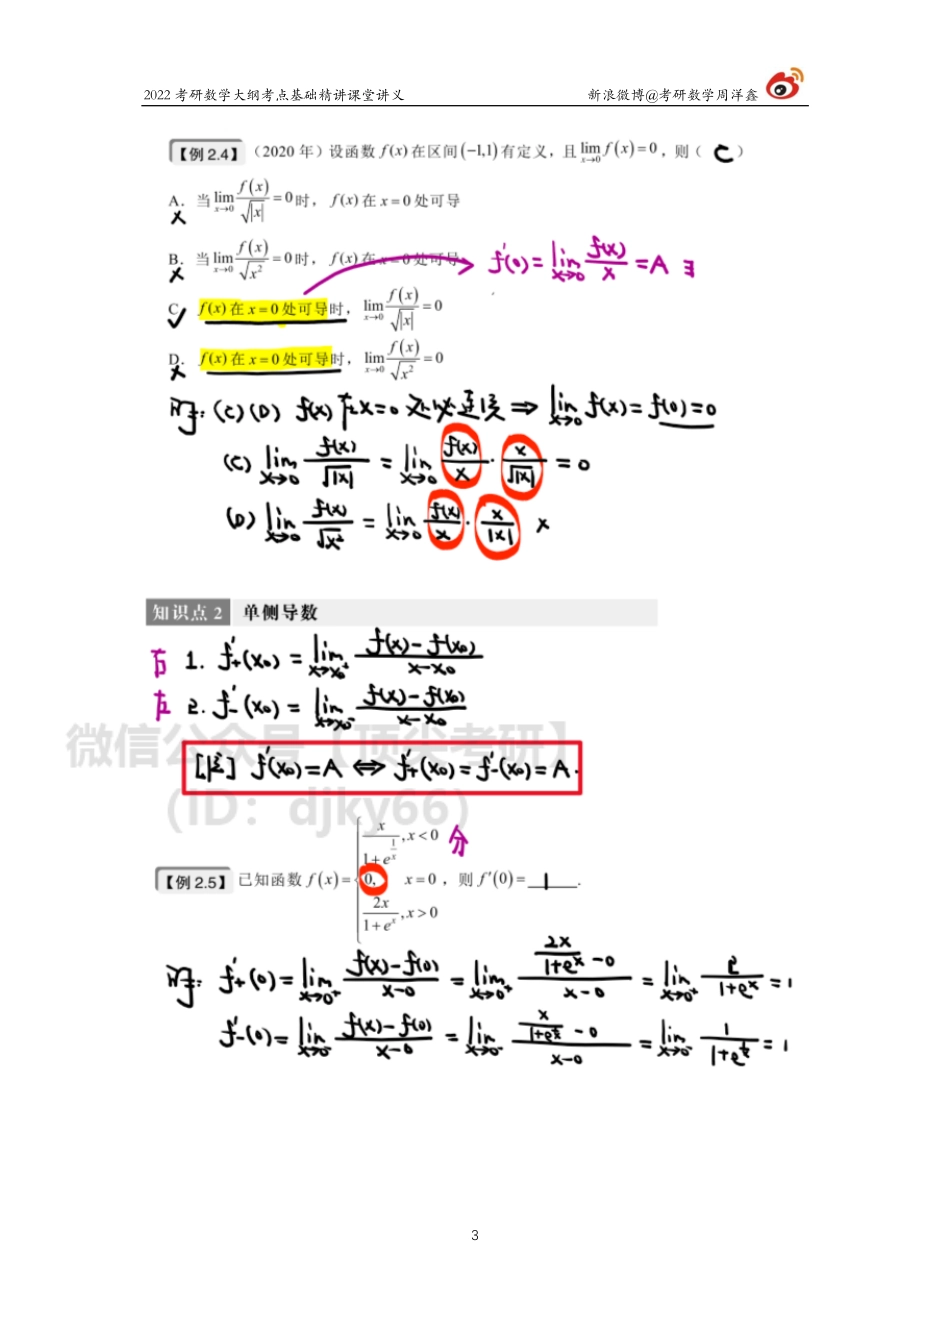 2022 考研数学大纲考点基础精讲课堂讲义 新浪微博@考研数学周洋鑫
【例 2.4】 (2020 年) 设函数 f(x) 在区间 (−1,1) 有定义，且 lim_{x→0} f(x)=0，则 ( C )
A. 当 lim_{x→0} f(x)/√|x| = 0 时，f(x) 在 x=0 处可导
×
B. 当 lim_{x→0} f(x)/√x² = 0 时，f(x) 在 x=0 处可导 f'(0)= lim_{x→0} f(x)/x = A ∃
×
C. f(x) 在 x=0 处可导时，lim_{x→0} f(x)/√|x| = 0
✓
D. f(x) 在 x=0 处可导时，lim_{x→0} f(x)/√x² = 0
×
解: (C)(D) f(x) 在x=0 处必连续 ⇒ lim_{x→0} f(x) = f(0) = 0
(C) lim_{x→0} f(x)/√|x| = lim_{x→0} f(x)/x · x/√|x| = 0
(D) lim_{x→0} f(x)/√x² = lim_{x→0} f(x)/x · x/|x| ×
知识点 2 单侧导数
右 1. f'₊(x₀) = lim_{x→x₀⁺} (f(x)−f(x₀))/(x−x₀)
左 2. f'₋(x₀) = lim_{x→x₀⁻} (f(x)−f(x₀))/(x−x₀)
微信公众号【顶尖考研】
[注] f'(x₀)=A ⇔ f'₊(x₀)=f'₋(x₀)=A.
(ID：djky66)
【例 2.5】 已知函数 f(x)= { x/(1+e^{1/x}), x<0 ; 0, x=0 ; 2x/(1+e^x), x>0 ，则 f′(0)= 1 .
分
解: f'₊(0)= lim_{x→0⁺} (f(x)−f(0))/(x−0) = lim_{x→0⁺} (2x/(1+e^x) −0)/(x−0) = lim_{x→0⁺} 2/(1+e^x) = 1
f'₋(0)= lim_{x→0⁻} (f(x)−f(0))/(x−0) = lim_{x→0⁻} (x/(1+e^{1/x}) −0)/(x−0) = lim_{x→0⁻} 1/(1+e^{1/x}) = 1
3